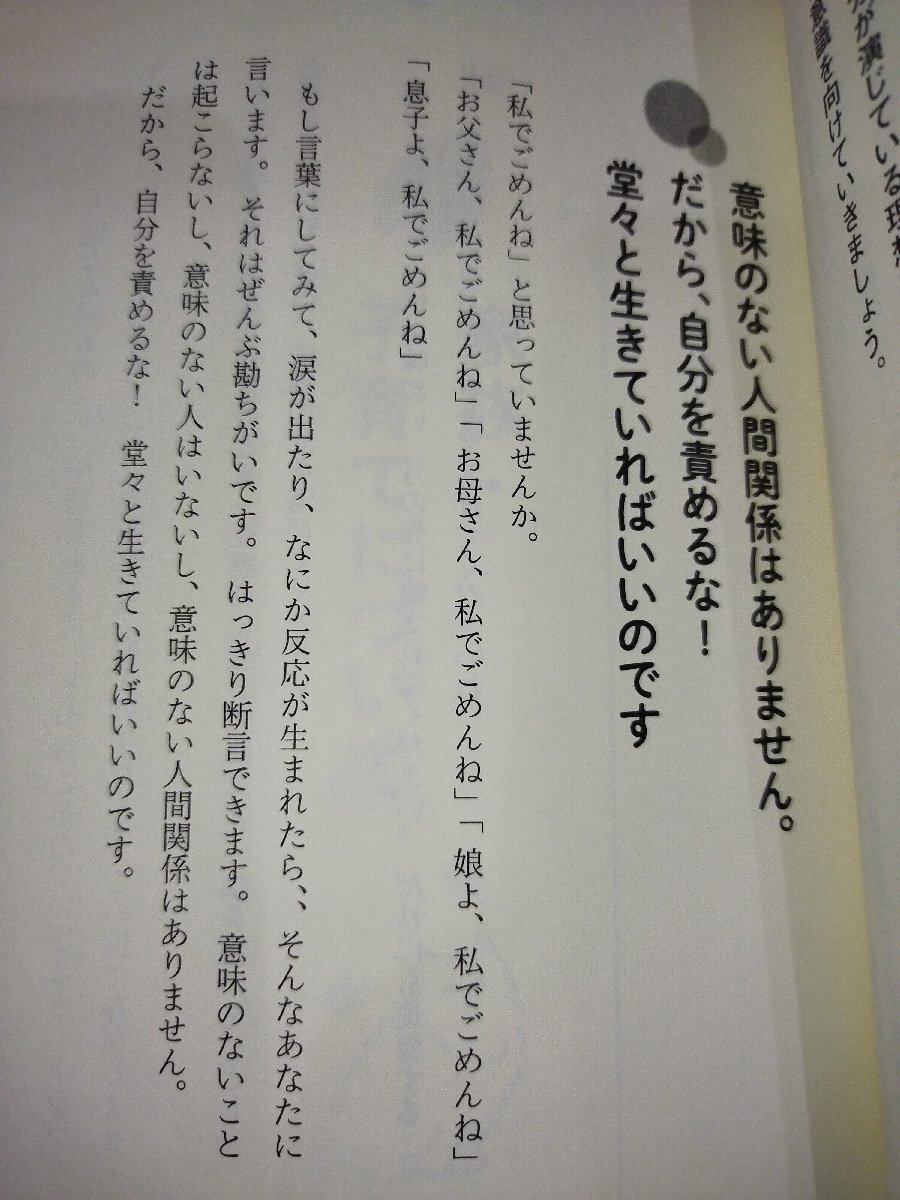 が演じている理想
意識を向けていきましょう。
意味のない人間関係はありません。
だから、自分を責めるな！
堂々と生きていればいいのです
「私でごめんね」と思っていませんか。
「お父さん、私でごめんね」「お母さん、私でごめんね」「娘よ、私でごめんね」
「息子よ、私でごめんね」
もし言葉にしてみて、涙が出たり、なにか反応が生まれたら、、そんなあなたに
言います。それはぜんぶ勘ちがいです。はっきり断言できます。意味のないこと
は起こらないし、意味のない人はいないし、意味のない人間関係はありません。
だから、自分を責めるな！　堂々と生きていればいいのです。